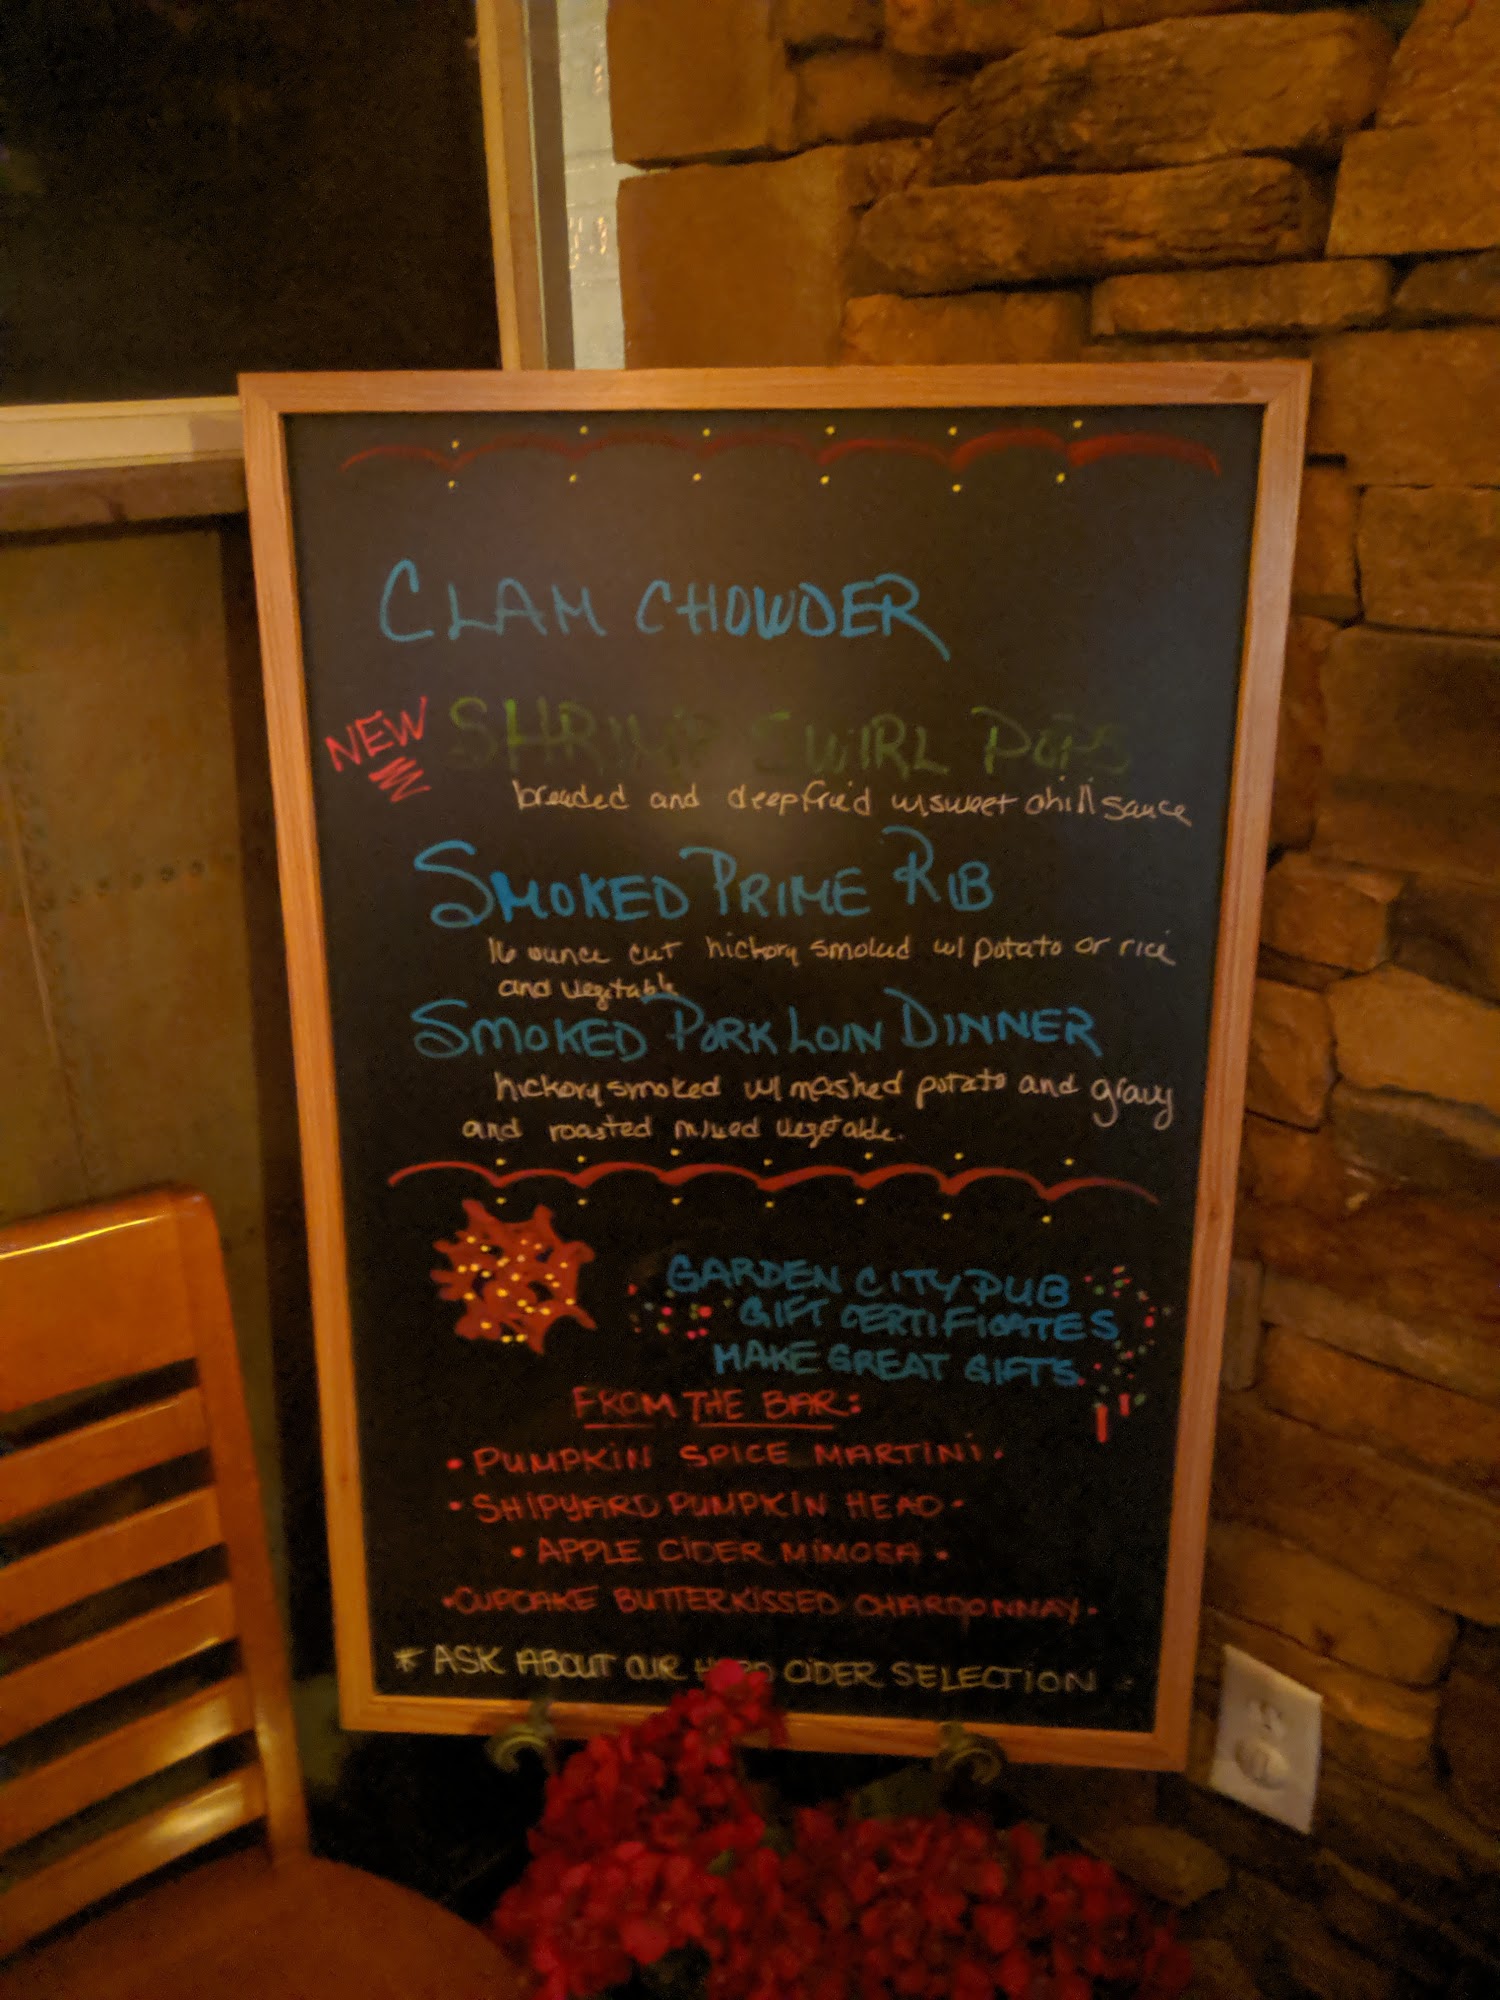 CLAM CHOWDER
NEW SHRIMP SWIRL POPS
breaded and deepfried w/sweet chili sauce
SMOKED PRIME RIB
16 ounce cut hickory smoked w/ potato or rice
and vegetable
SMOKED PORK LOIN DINNER
hickory smoked w/ mashed potato and gravy
and roasted mixed vegetable.
GARDEN CITY PUB
GIFT CERTIFICATES
MAKE GREAT GIFTS
FROM THE BAR:
• PUMPKIN SPICE MARTINI •
• SHIPYARD PUMPKIN HEAD •
• APPLE CIDER MIMOSA •
• CUPCAKE BUTTERKISSED CHARDONNAY •
* ASK ABOUT OUR HARD CIDER SELECTION